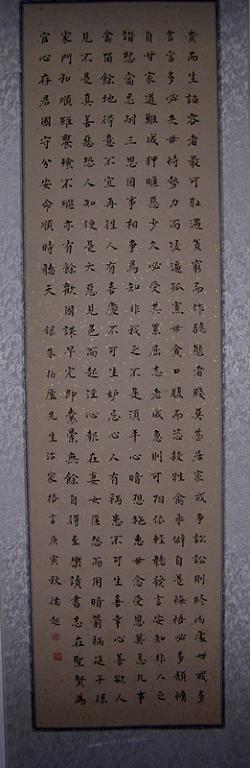 貴而生諂容者最可恥遇貧窮而作驕態者賤莫甚居家戒爭訟訟則終凶處世戒多
言言多必失毋恃勢力而凌逼孤寡毋貪口腹而恣殺牲禽乖僻自是悔悟必多頹惰
自甘家道難成狎暱惡少久必受其累屈志老成急則可相依輕聽發言安知非人之
譖愬當忍耐三思因事相爭焉知非我之不是須平心暗想施惠毋念受恩莫忘凡事
當留餘地得意不宜再往人有喜慶不可生妒忌心人有禍患不可生喜幸心善欲人
見不是真善惡恐人知便是大惡見色而起淫心報在妻女匿怨而用暗箭禍延子孫
家門和順雖饔飧不繼亦有餘歡國課早完即囊橐無餘自得至樂讀書志在聖賢為
官心存君國守分安命順時聽天 錄朱柏廬先生治家格言庚寅秋德超